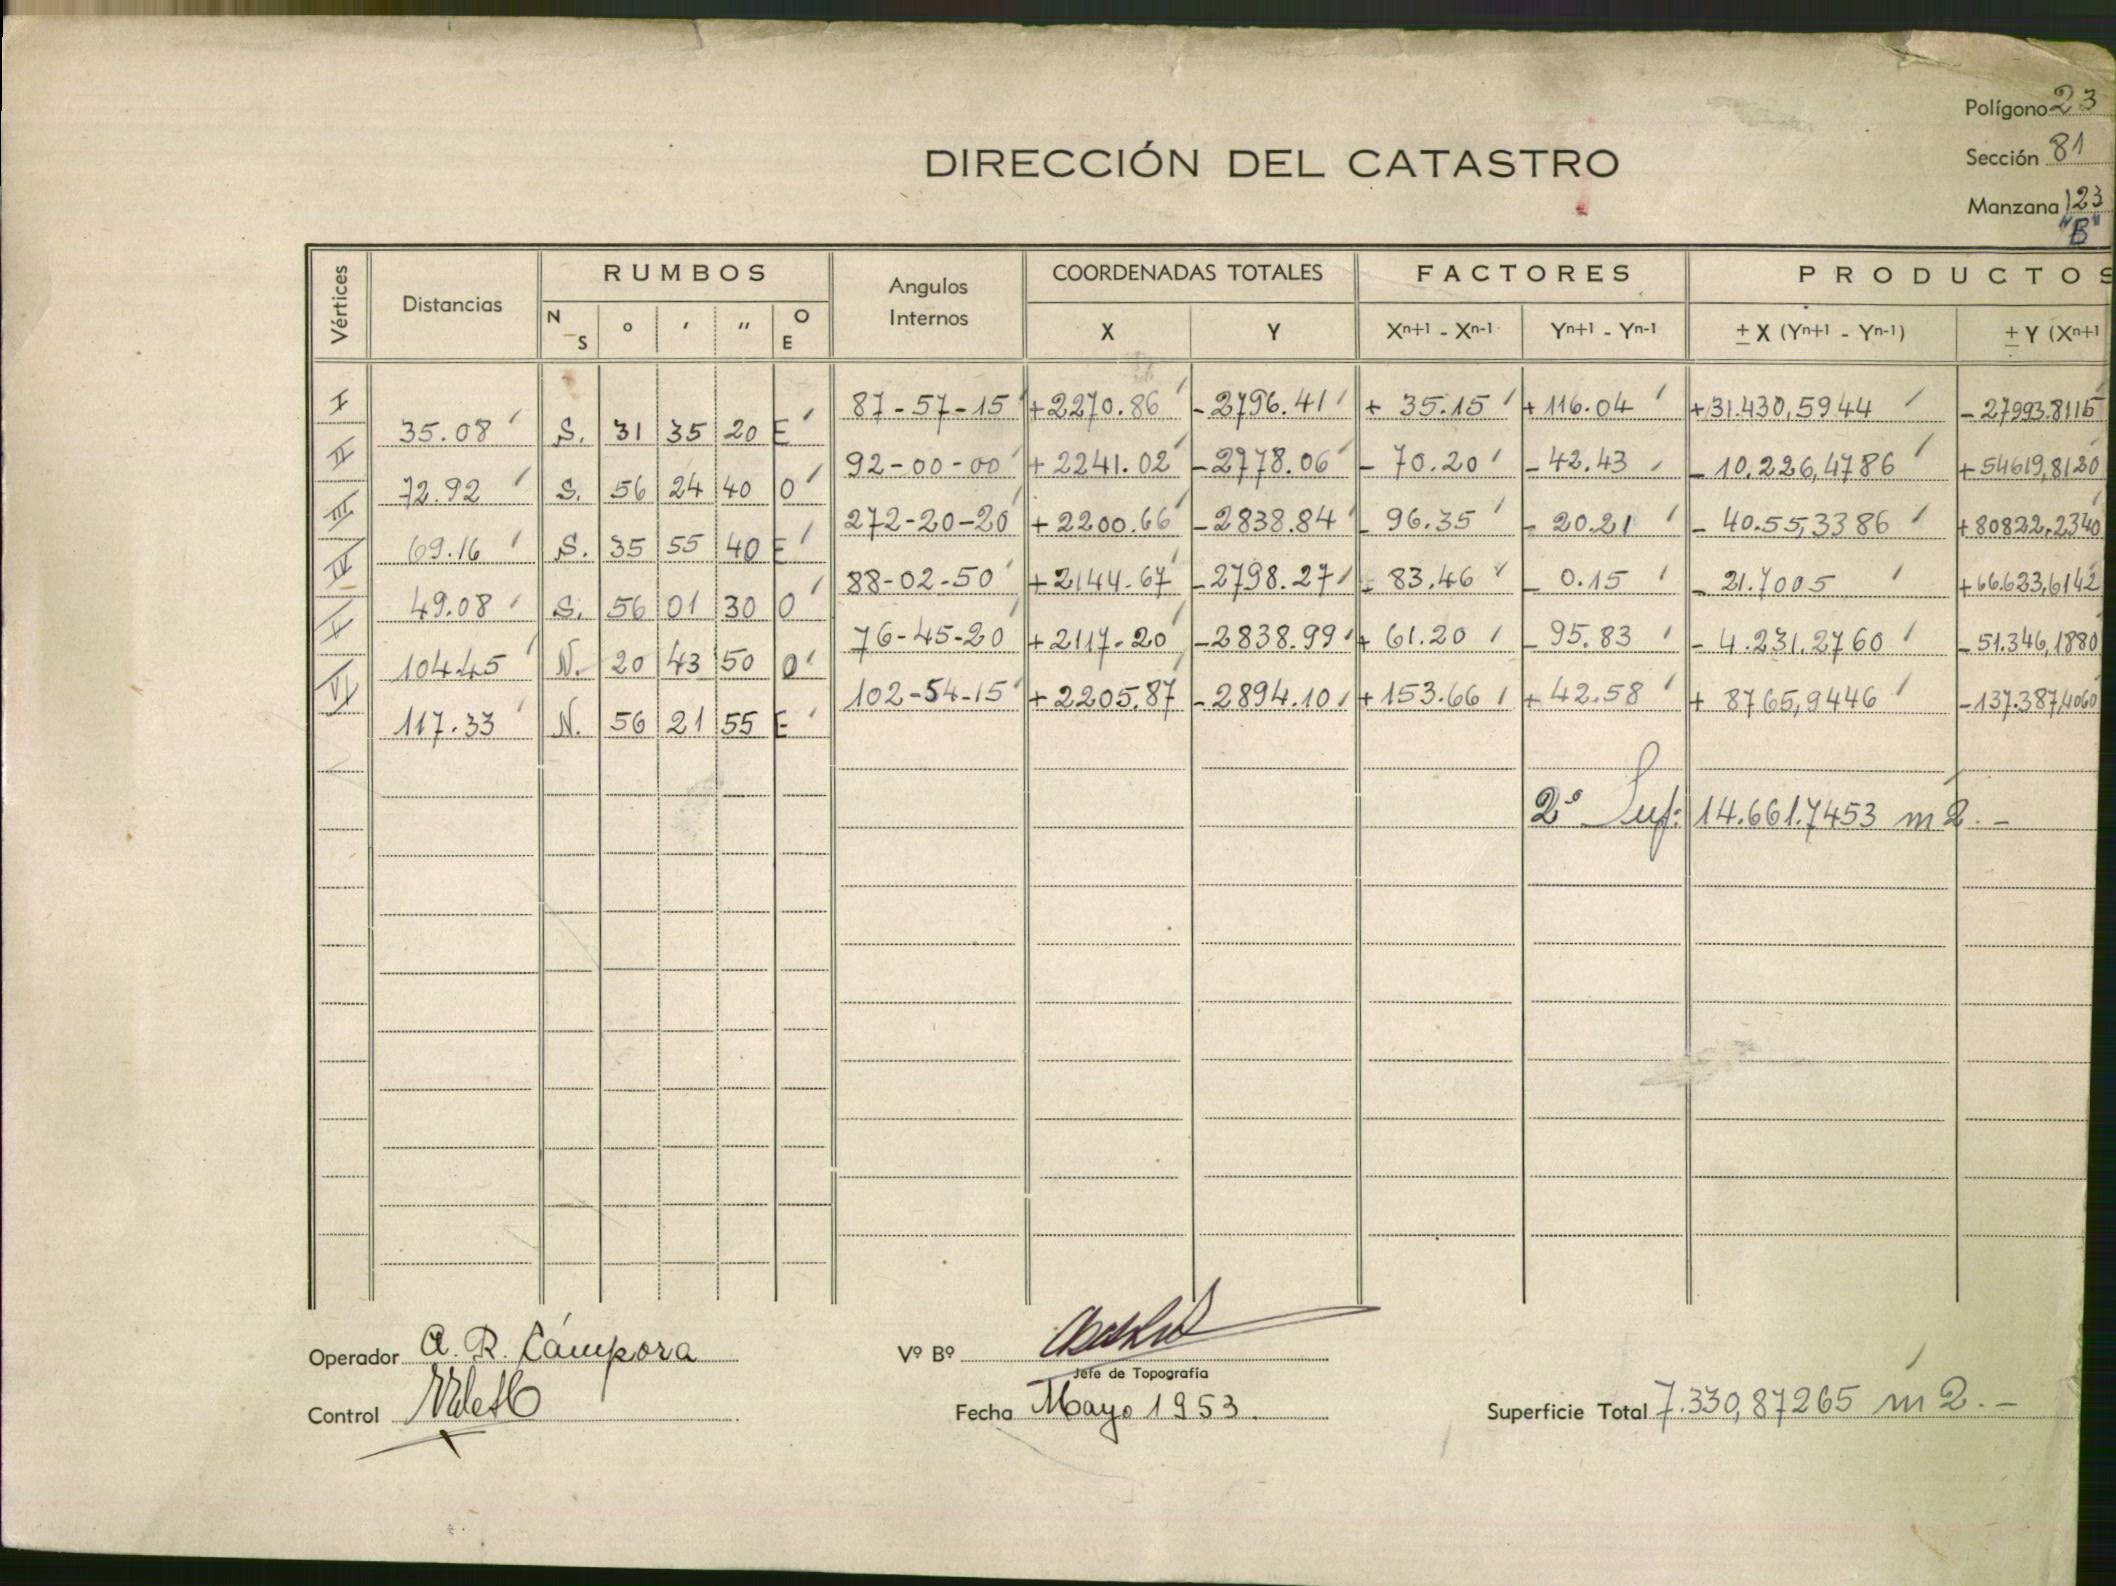 Polígono 23
DIRECCIÓN DEL CATASTRO
Sección 81
Manzana 123
"B"
Vértices Distancias RUMBOS Angulos Internos COORDENADAS TOTALES FACTORES PRODUCTOS
N S ° ' " O E X Y Xn+1 - Xn-1 Yn+1 - Yn-1 ± X (Yn+1 - Yn-1) ± Y (Xn+1
I 87-57-15 +2270.86 -2796.41 + 35.15 + 116.04 +31.430,5944 -27993.8115
35.08 S. 31 35 20 E
II 92-00-00 +2241.02 -2778.06 - 70.20 - 42.43 - 10.226,4786 +54619,8120
72.92 S. 56 24 40 O
III 272-20-20 +2200.66 -2838.84 - 96.35 - 20.21 - 40.55,3386 +80822.2340
69.16 S. 35 55 40 E
IV 88-02-50 +2144.67 -2798.27 - 83.46 - 0.15 - 21.7005 +66.623,6142
49.08 S. 56 01 30 O
V 76-45-20 +2117.20 -2838.99 + 61.20 - 95.83 - 4.231.2760 -51.346,1880
104.45 N. 20 43 50 O
VI 102-54-15 +2205.87 -2894.10 +153.66 + 42.58 + 8765,9446 -137.387,4060
117.33 N. 56 21 55 E
2º Suf: 14.661.7453 m2.-
Operador A. R. Cámpora Vº Bº
Jefe de Topografía
Control Fecha Mayo 1953. Superficie Total 7.330,87265 m2.-